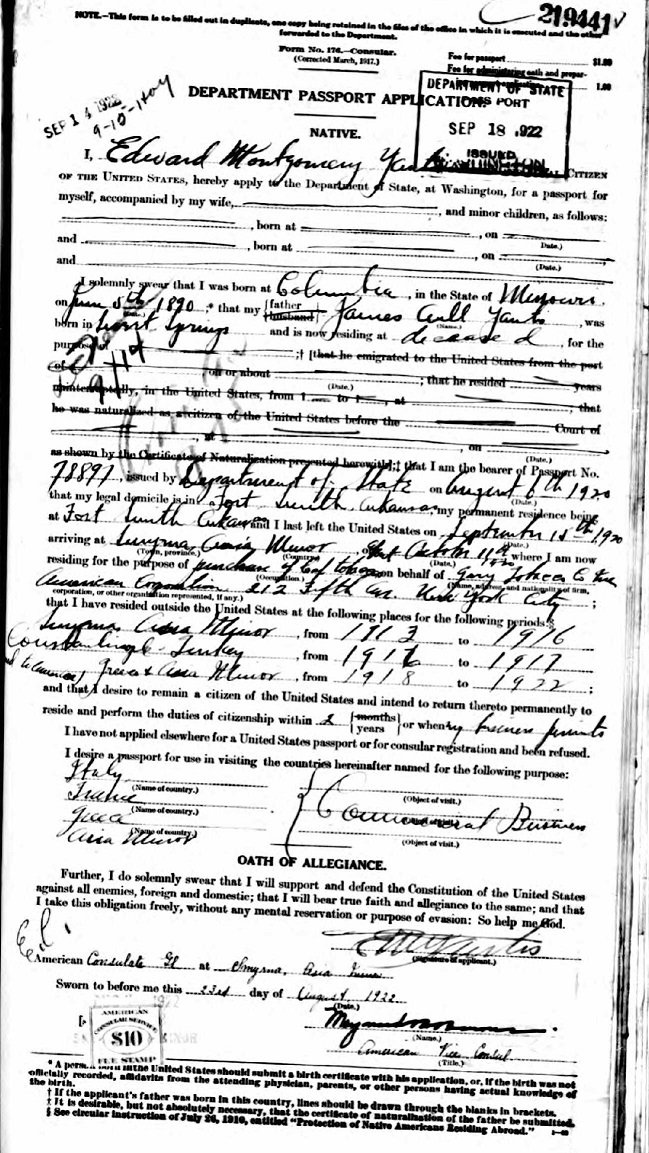 219441
NOTE.—This form is to be filled out in duplicate, one copy being retained in the files of the office in which it is executed and the other
forwarded to the Department.
Form No. 176.—Consular.
(Corrected March, 1917.)
Fee for passport $1.00
Fee for administering oath and prepar-
1.00
SEP 1 1922
DEPARTMENT PASSPORT APPLICATION.
DEPARTMENT OF STATE
PASSPORT
SEP 18 1922
ISSUED
WASHINGTON
NATIVE.
I, Edward Montgomery Yantis CITIZEN
OF THE UNITED STATES, hereby apply to the Department of State, at Washington, for a passport for
myself, accompanied by my wife, , and minor children, as follows:
, born at , on
(Date.)
and , born at , on
(Date.)
and
I solemnly swear that I was born at Columbia, in the State of Missouri,
on June 5th 1890,* that my father husband James Cull Yantis, was
(Name.)
born in Springs and is now residing at deceased, for the
purpose of ;† [that he emigrated to the United States from the port
of on or about ; that he resided years
(Date.)
uninterruptedly, in the United States, from 1 to 1 , at ; that
he was naturalized as a citizen of the United States before the Court of
at , on
(Date.)
as shown by the Certificate of Naturalization presented herewith];‡ that I am the bearer of Passport No.
78891, issued by Department of State on August 6th 1920
(Date.)
that my legal domicile is in Fort Smith Arkansas, my permanent residence being
at Fort Smith Arkansas and I last left the United States on September 15th, 1920
(Date.)
arriving at Smyrna Asia Minor, October 11th 1920 where I am now
(Town, province.) (Country.) (Date.)
residing for the purpose of purchase of leaf tobacco on behalf of Gary Tobacco Co
(Occupation.) (Name, address, and nationality of firm,
American Corporation 212 Fifth Av. New York City ;
corporation, or other organization represented, if any.)
that I have resided outside the United States at the following places for the following periods:§
Smyrna Asia Minor, from 1913 to 1916
Constantinople Turkey, from 1916 to 1917
Greece & Asia Minor, from 1918 to 1922;
and that I desire to remain a citizen of the United States and intend to return thereto permanently to
reside and perform the duties of citizenship within 2 months years or when my business permits
I have not applied elsewhere for a United States passport or for consular registration and been refused.
I desire a passport for use in visiting the countries hereinafter named for the following purpose:
Italy
(Name of country.) (Object of visit.)
France
(Name of country.) Commercial Business
Greece (Object of visit.)
(Name of country.) (Object of visit.)
Asia Minor
OATH OF ALLEGIANCE.
Further, I do solemnly swear that I will support and defend the Constitution of the United States
against all enemies, foreign and domestic; that I will bear true faith and allegiance to the same; and that
I take this obligation freely, without any mental reservation or purpose of evasion: So help me God.
EMYantis
(Signature of applicant.)
American Consulate Gl at Smyrna, Asia Minor
Sworn to before me this 23rd day of August, 1922
(Date.)
(Name.)
American Vice Consul
(Title.)
AMERICAN
CONSULAR SERVICE
$10
FEE STAMP
* A person born in the United States should submit a birth certificate with his application, or, if the birth was not
officially recorded, affidavits from the attending physician, parents, or other persons having actual knowledge of
the birth.
† If the applicant's father was born in this country, lines should be drawn through the blanks in brackets.
‡ It is desirable, but not absolutely necessary, that the certificate of naturalization of the father be submitted.
§ See circular instruction of July 26, 1910, entitled "Protection of Native Americans Residing Abroad."